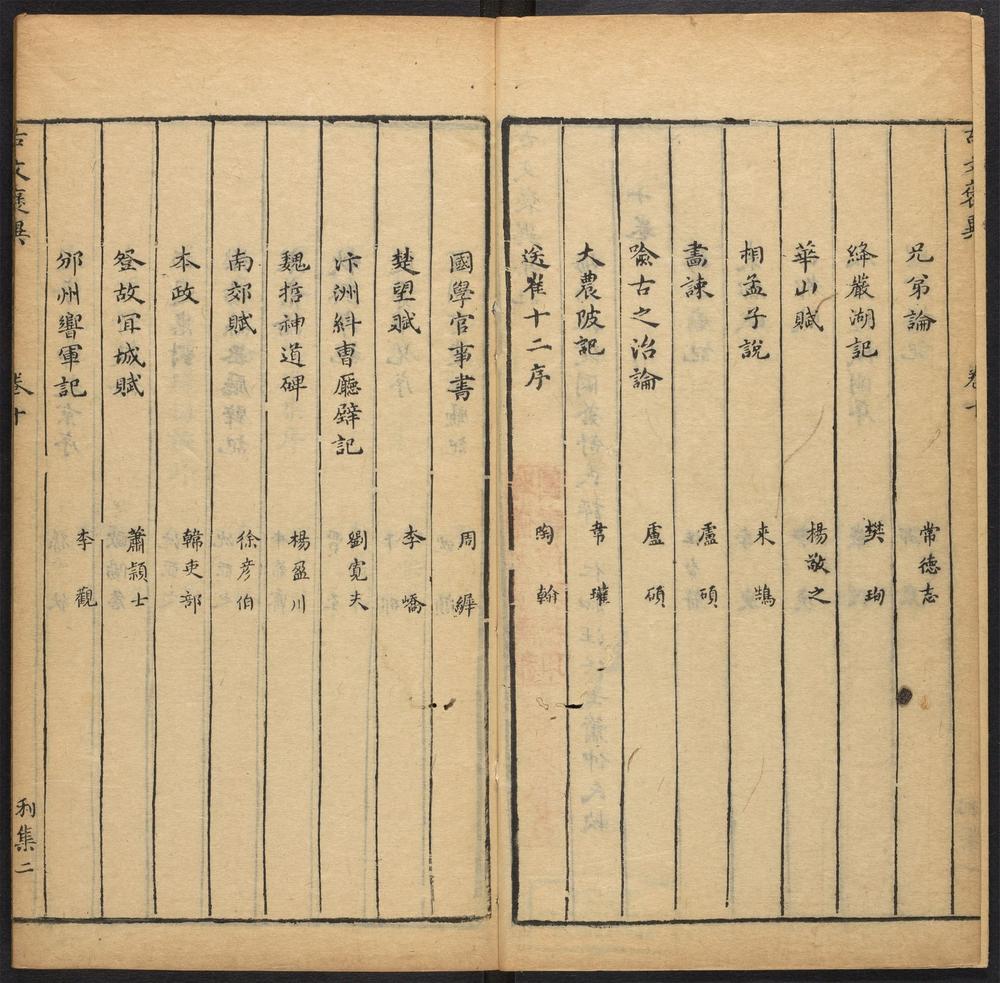 兄弟論 常德志
絳巖湖記 樊珣
華山賦 楊敬之
相孟子說 来鵠
畵諫 盧碩
喻古之治論 盧碩
大農陂記 韋瓘
送崔十二序 陶翰
國學官事書 周墀
楚望賦 李嶠
汴洲糾曹廳壁記 劉寬夫
魏哲神道碑 楊盈川
南郊賦 徐彦伯
本政 韓吏部
登故宜城賦 蕭頴士
邠州響軍記 李觀
古文褎異 卷十 利集 二